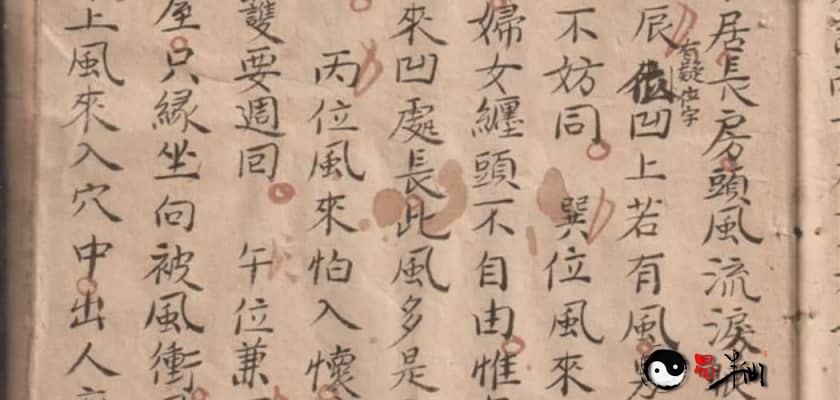 居長房頭風流淚
有疑位字
辰位凹上若有風
不妨同 巽位風來
婦女纏頭不自由惟
來凹處長此風多是
丙位風來怕入懷
雙要週回 午位兼
屋只緣坐向被風衝
上風來入穴中出人
易半仙